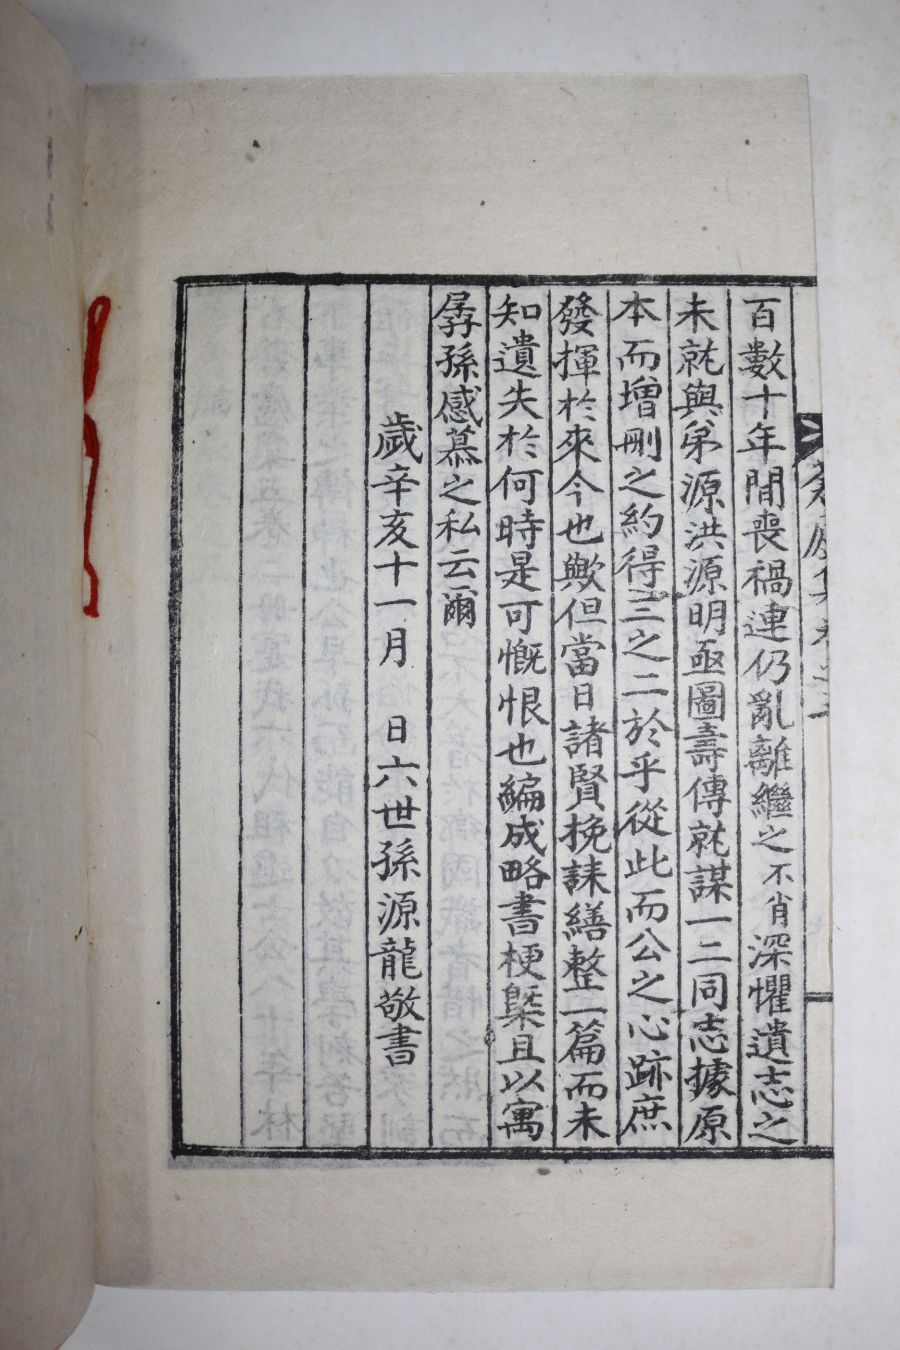 百數十年間喪禍連仍亂離繼之不肖深懼遺志之
未就與弟源洪源明亟圖壽傳就謀一二同志據原
本而增刪之約得三之二於乎從此而公之心跡庶
發揮於來今也歟但當日諸賢挽誄繕整一篇而未
知遺失於何時是可慨恨也編成略書梗槩且以寓
孱孫感慕之私云爾
歲辛亥十一月 日六世孫源龍敬書